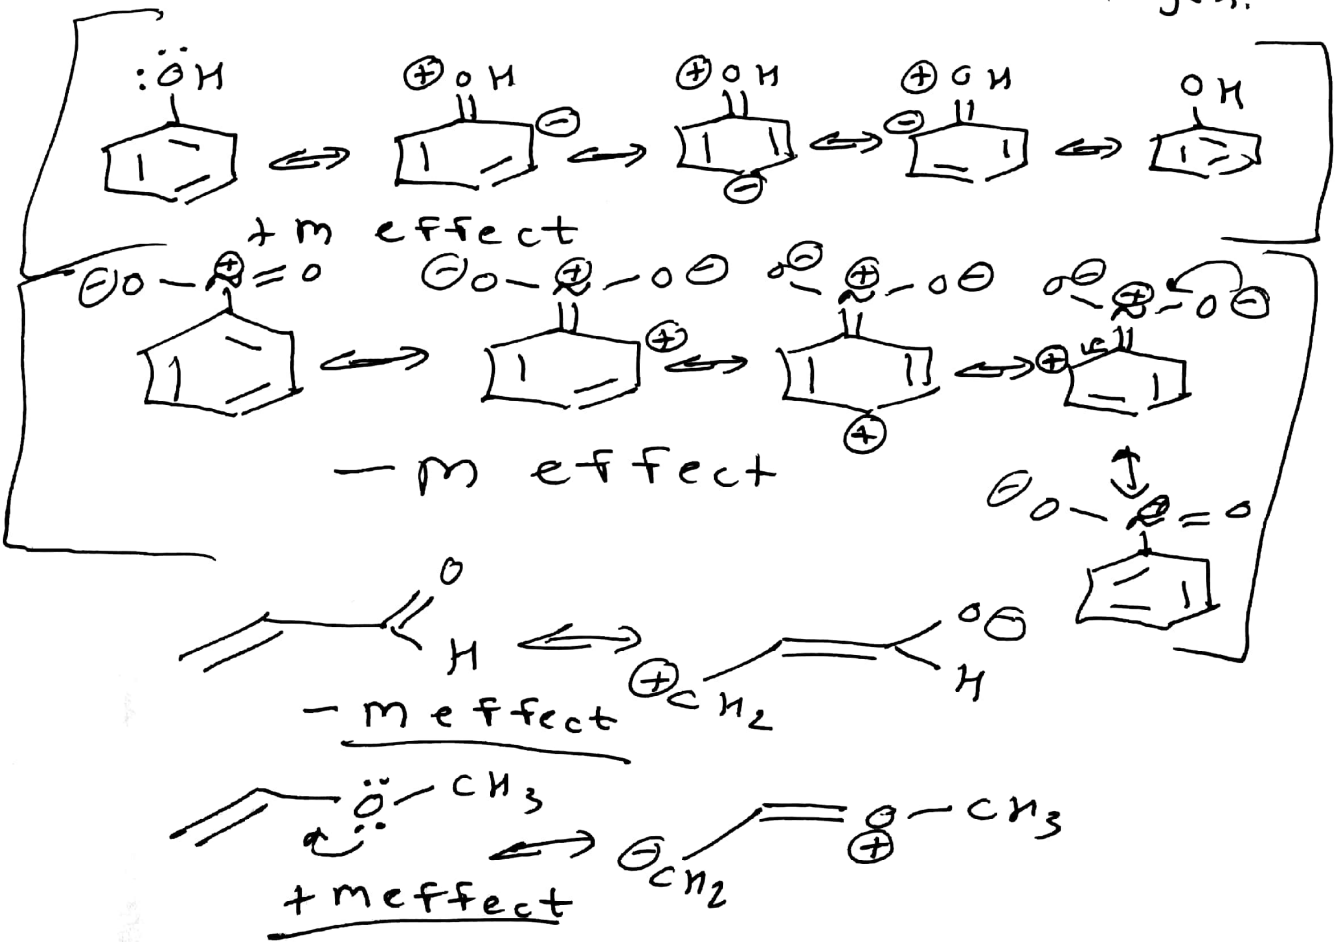 :ÖH ⊕OH ⊕OH ⊕OH OH
⊖ ⊖ ⊖
+m effect
⊖O-N⊕=O ⊖O-N⊕-O⊖ O⊖-N⊕-O⊖ O⊖-N⊕-O⊖
⊕ ⊕ ⊕
-m effect
⊖O-N⊕=O
O H ⊕CH2 O⊖ H
-m effect
Ö-CH3 ⊖CH2 O⊕-CH3
+m effect